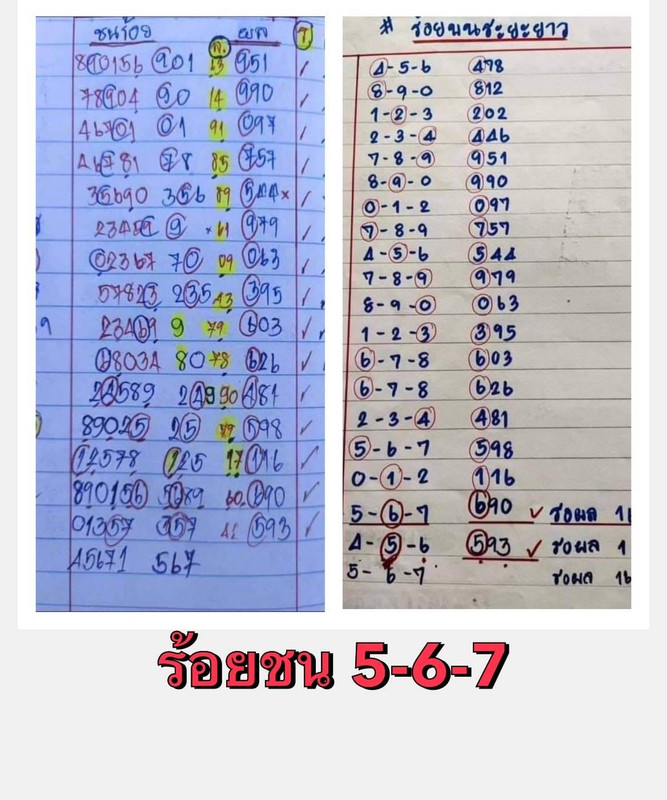 ชนร้อย ล. ผล ร
890156 901 53 951
78904 90 14 990
46701 01 91 097
46781 78 85 757
35690 356 89 544×
23489 9 ×61 979
02367 70 09 063
57823 235 43 395
23469 9 79 603
68034 80 78 626
24589 249 90 481
89025 25 89 598
12578 125 17 116
890156 5089 60 690
01357 357 41 593
45671 567
# ร้อยบนระยะยาว
4-5-6 478
8-9-0 812
1-2-3 202
2-3-4 446
7-8-9 951
8-9-0 990
0-1-2 097
7-8-9 757
4-5-6 544
7-8-9 979
8-9-0 063
1-2-3 395
6-7-8 603
6-7-8 626
2-3-4 481
5-6-7 598
0-1-2 116
5-6-7 690 ✓ รอผล 16
4-5-6 593 ✓ รอผล 1
5-6-7 รอผล 16
ร้อยชน 5-6-7